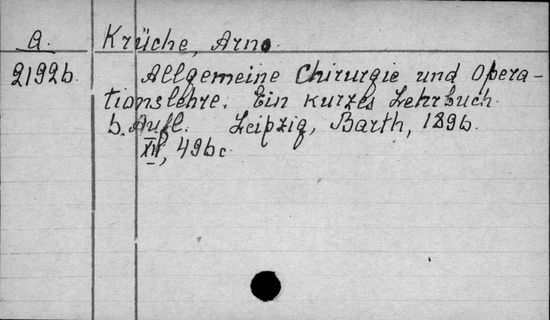 a. Krüche, Arno.
2192b. Allgemeine Chirurgie und Opera-
tionslehre. Ein kurzes Lehrbuch.
6. Aufl. Leipzig, Barth, 1896.
XII, 496 c.